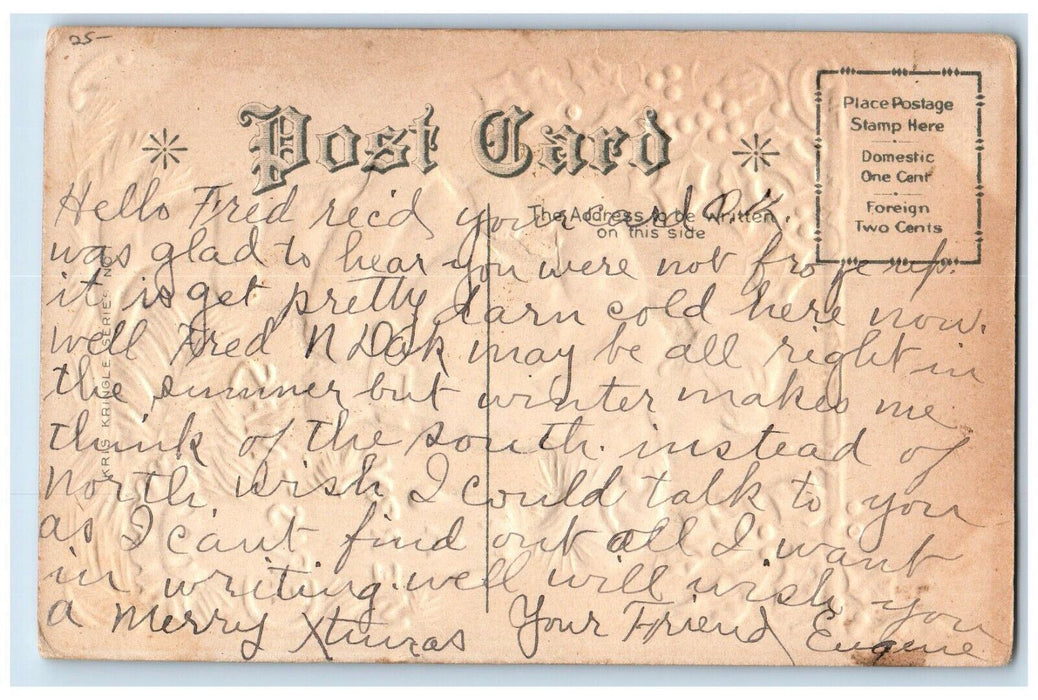 25-
Post Card
Place Postage
Stamp Here
Domestic
One Cent
Foreign
Two Cents
The Address to be Written
on this side
KRIS KRINGLE SERIES NO.
Hello Fred rec'd your card O.K.
was glad to hear you were not froze up.
it is get pretty darn cold here now.
well Fred N Dak may be all right in
the summer but winter makes me
think of the south. instead of
North, wish I could talk to you
as I can't find out all I want
in writing. well will wish you
a Merry Xtmas Your Friend Eugene